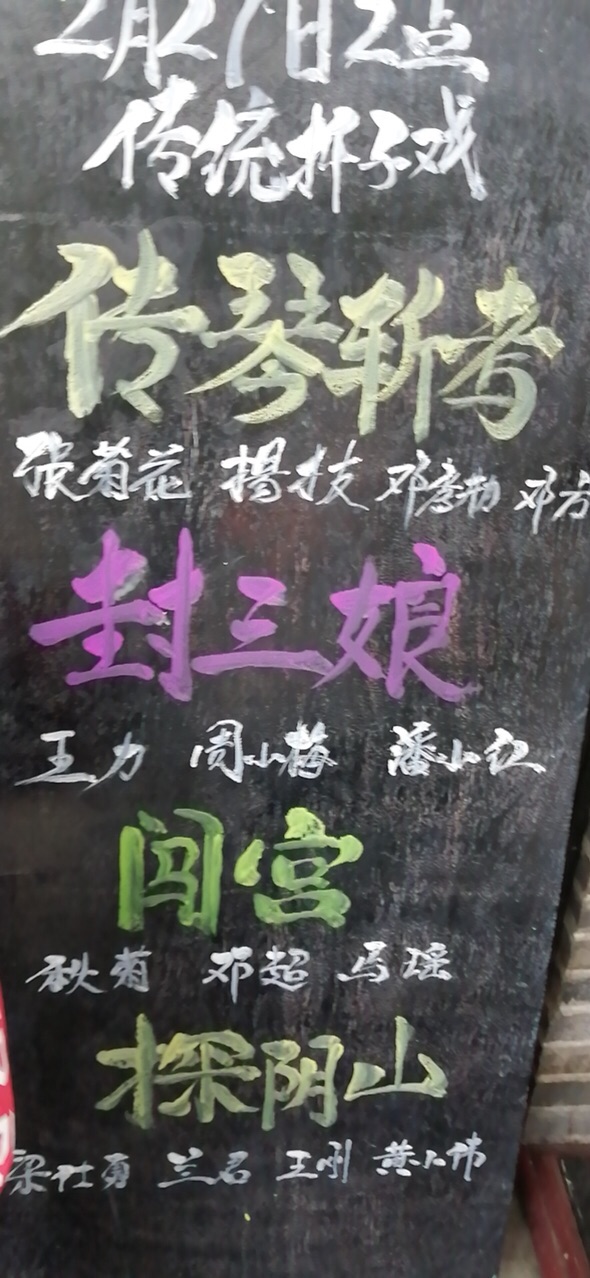 2月27日2点
传统折子戏
传琴斩考
张菊花 杨技 邓彦勃 邓方
封三娘
王力 周小梅 潘小红
闯宫
秋菊 邓超 马瑶
探阴山
梁仕勇 兰君 王刚 黄小伟